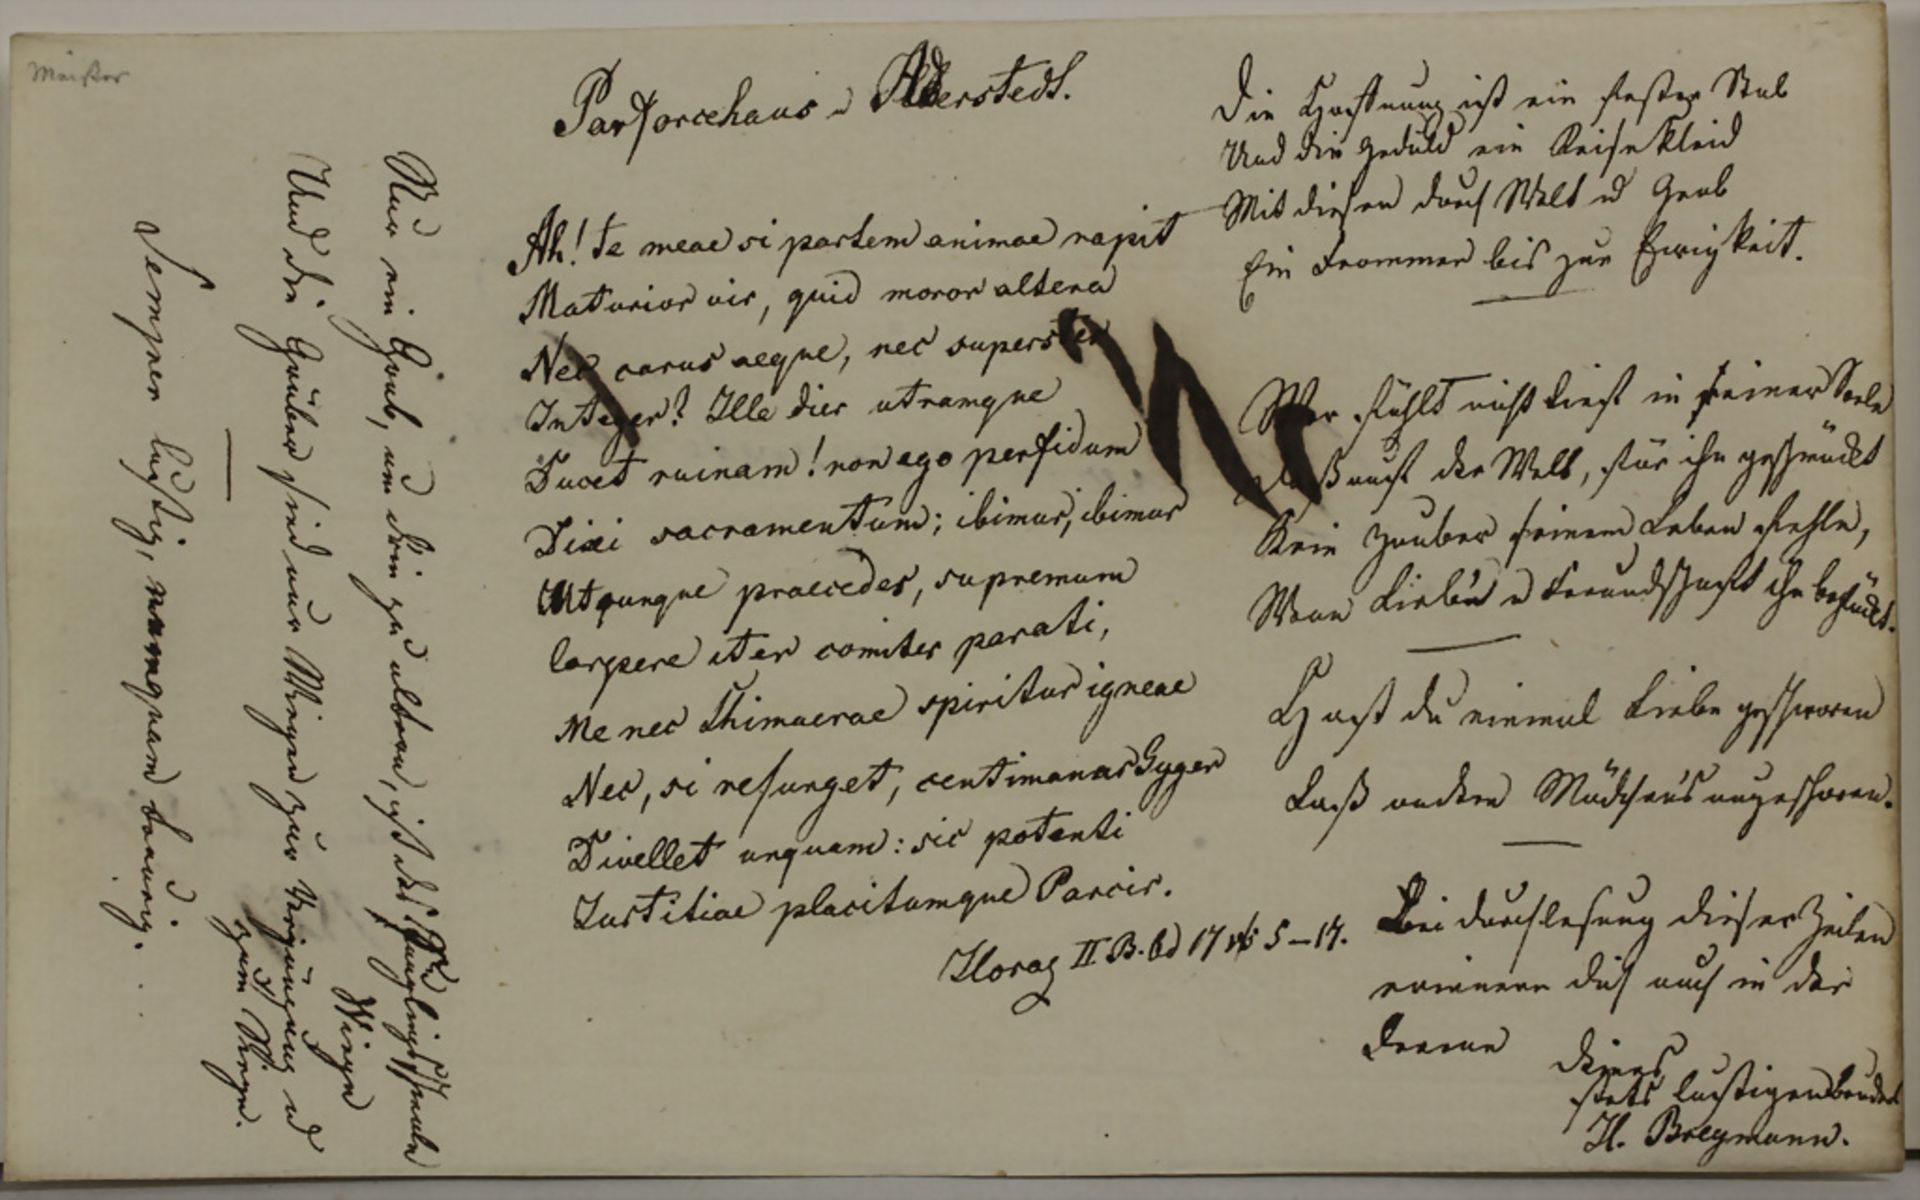 Meister
Parforcehaus u Aderstedt.
Ah! te meae si partem animae rapit
Maturior vis, quid moror altera
Nec carus aeque, nec superstes
Integer? Ille dies utramque
Ducet ruinam! non ego perfidum
Dixi sacramentum; ibimus, ibimus
Utqunque praecedes, supremum
Carpere iter comites parati,
Me nec Chimaerae spiritus igneae
Nec, si resurget, centimanus Gyges
Divellet unquam: sic potenti
Justitiae placitumque Parcis.
Horaz II B. Od 17 5–17.
Die Hoffnung ist ein fester Stab
Und die Geduld ein Reisekleid
Mit diesen durch Welt u Grab
Ein Frommer bis zur Ewigkeit.
Wer fühlt nicht tief in seiner Seele
Daß auf der Welt, für ihn geschmückt
Kein Zauber seinem Leben fehle,
Wenn Liebe u Freundschaft ihn beglückt.
Hast du einmal Liebe geschworen
Laß andere Mädchens ungeschoren.
Bei Durchlesung dieser Zeilen
erinnere dich auch in der
Ferne
deines
stets lustigen Bruders
H. Breymann.
Nur ein Grab, um drin zu altern, ist das
Wiege
Und die Gräber sind nur Wiegen zur Verjüngung u
zum Siege.
Semper lustig, nunquam traurig.